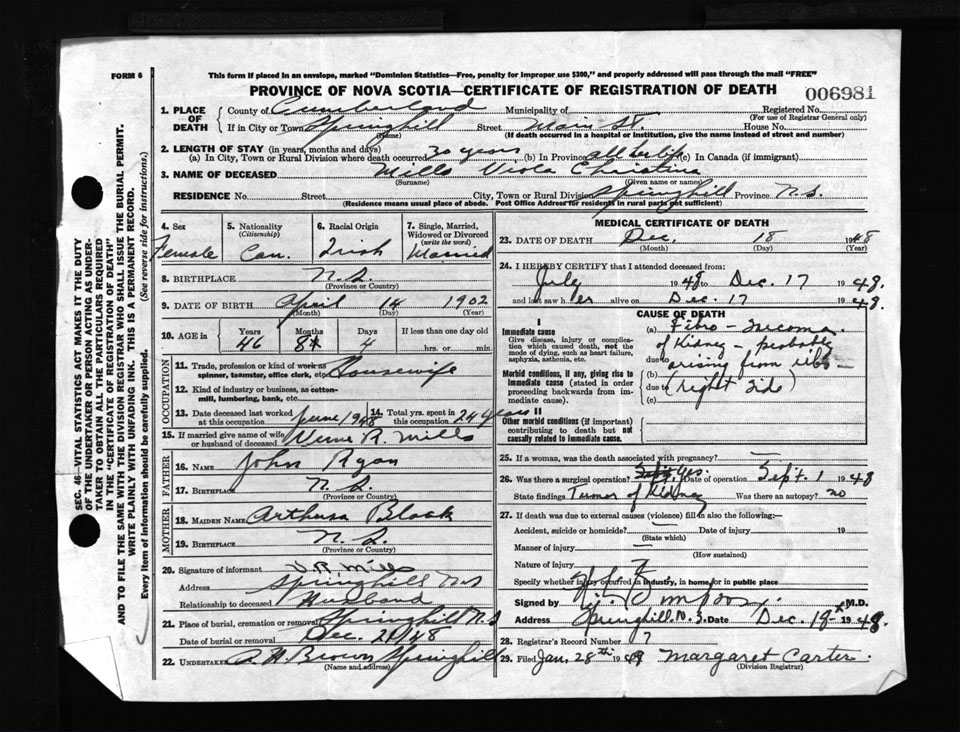 FORM 6
This form if placed in an envelope, marked "Dominion Statistics—Free, penalty for improper use $300," and properly addressed will pass through the mail "FREE"
PROVINCE OF NOVA SCOTIA—CERTIFICATE OF REGISTRATION OF DEATH
006981
1. PLACE OF DEATH County of Cumberland Municipality of Registered No.
(For use of Registrar General only)
If in City or Town Springhill Street Main St. House No.
(Name) (If death occurred in a hospital or institution, give the name instead of street and number)
2. LENGTH OF STAY (in years, months and days)
(a) In City, Town or Rural Division where death occurred 30 years (b) In Province all her life (c) In Canada (if immigrant)
3. NAME OF DECEASED Mills Viola Christina
(Surname) (Given name or names)
RESIDENCE No. Street City, Town or Rural Division Springhill Province N.S.
(Residence means usual place of abode. Post Office Address for residents in rural parts not sufficient)
4. Sex 5. Nationality 6. Racial Origin 7. Single, Married,
(Citizenship) Widowed or Divorced
(write the word)
Female Can. Irish Married
8. BIRTHPLACE N.S.
(Province or Country)
9. DATE OF BIRTH April 14 1902
(Month) (Day) (Year)
10. AGE in Years Months Days If less than one day old
46 8 4 hrs. or min.
OCCUPATION
11. Trade, profession or kind of work as
spinner, teamster, office clerk, etc. Housewife
12. Kind of industry or business, as cotton-
mill, lumbering, bank, etc.
13. Date deceased last worked
at this occupation June 1948 14. Total yrs. spent in
this occupation 24 years
15. If married give name of wife
or husband of deceased R. Mills
FATHER
16. NAME John Ryan
17. BIRTHPLACE N.S.
(Province or Country)
MOTHER
18. MAIDEN NAME Arthusa Black
19. BIRTHPLACE N.S.
(Province or Country)
20. Signature of informant V.R. Mills
Address Springhill N.S.
Relationship to deceased Husband
21. Place of burial, cremation or removal Springhill N.S
Date of burial or removal Dec. 21/48
22. UNDERTAKER A.H. Brown Springhill
(Name and address)
MEDICAL CERTIFICATE OF DEATH
23. DATE OF DEATH Dec. 18 1948
(Month) (Day) (Year)
24. I HEREBY CERTIFY that I attended deceased from:
July 1948 to Dec. 17 1948.
and last saw her alive on Dec. 17 1948
CAUSE OF DEATH
I
Immediate cause
Give disease, injury or complica-
tion which caused death, not the
mode of dying, such as heart failure,
asphyxia, asthenia, etc.
(a) Fibro-
of Kidney — probably
due to arising from ribs —
Morbid conditions, if any, giving rise to
immediate cause (stated in order
proceeding backwards from im-
mediate cause).
(b)
due to (right side)
(c)
II
Other morbid conditions (if important)
contributing to death but not
causally related to immediate cause.
25. If a woman, was the death associated with pregnancy? —
26. Was there a surgical operation? Yes. Date of operation Sept. 1 1948
State findings Tumor of Kidney Was there an autopsy? no
27. If death was due to external causes (violence) fill in also the following:—
Accident, suicide or homicide? — Date of injury 19
(State which)
Manner of injury —
(How sustained)
Nature of injury
Specify whether injury occurred in industry, in home, or in public place
Signed by Simpson M.D.
Address Springhill N.S. Date Dec. 19 1948.
28. Registrar's Record Number 7
29. Filed Jan. 28th 1949 Margaret Carter.
(Division Registrar)
SEC. 46—VITAL STATISTICS ACT MAKES IT THE DUTY
OF THE UNDERTAKER OR PERSON ACTING AS UNDER-
TAKER TO OBTAIN ALL THE PARTICULARS REQUIRED
IN THE "CERTIFICATE OF REGISTRATION OF DEATH"
AND TO FILE THE SAME WITH THE DIVISION REGISTRAR WHO SHALL ISSUE THE BURIAL PERMIT.
WRITE PLAINLY WITH UNFADING INK. THIS IS A PERMANENT RECORD.
Every item of information should be carefully supplied. (See reverse side for instructions.)